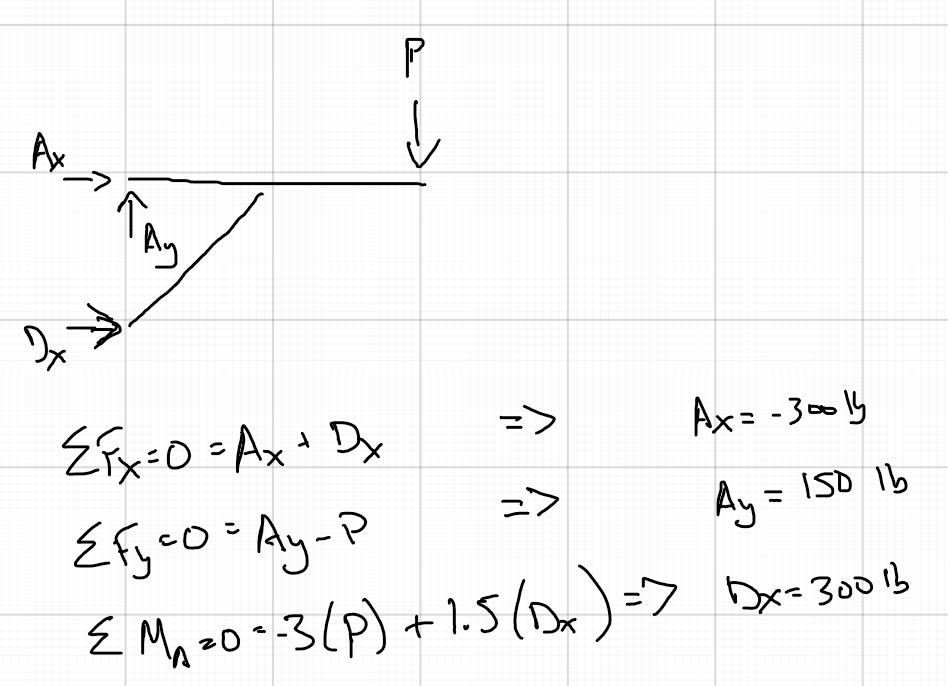 P
Ax
Ay
Dx
ΣFx=0 = Ax + Dx => Ax = -300 lb
ΣFy=0 = Ay - P => Ay = 150 lb
ΣMA=0 = -3(P) + 1.5(Dx) => Dx = 300 lb